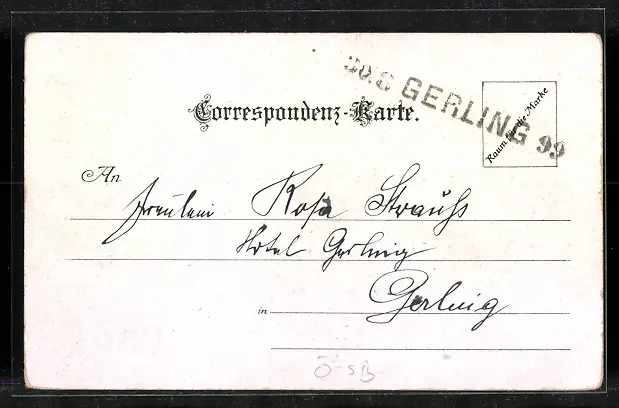 30.8 GERLING 99
Correspondenz-Karte.
Raum für die Marke
An
Fräulein Rosa Strauss
Hotel Gerling
in Gerling
Ö-SB